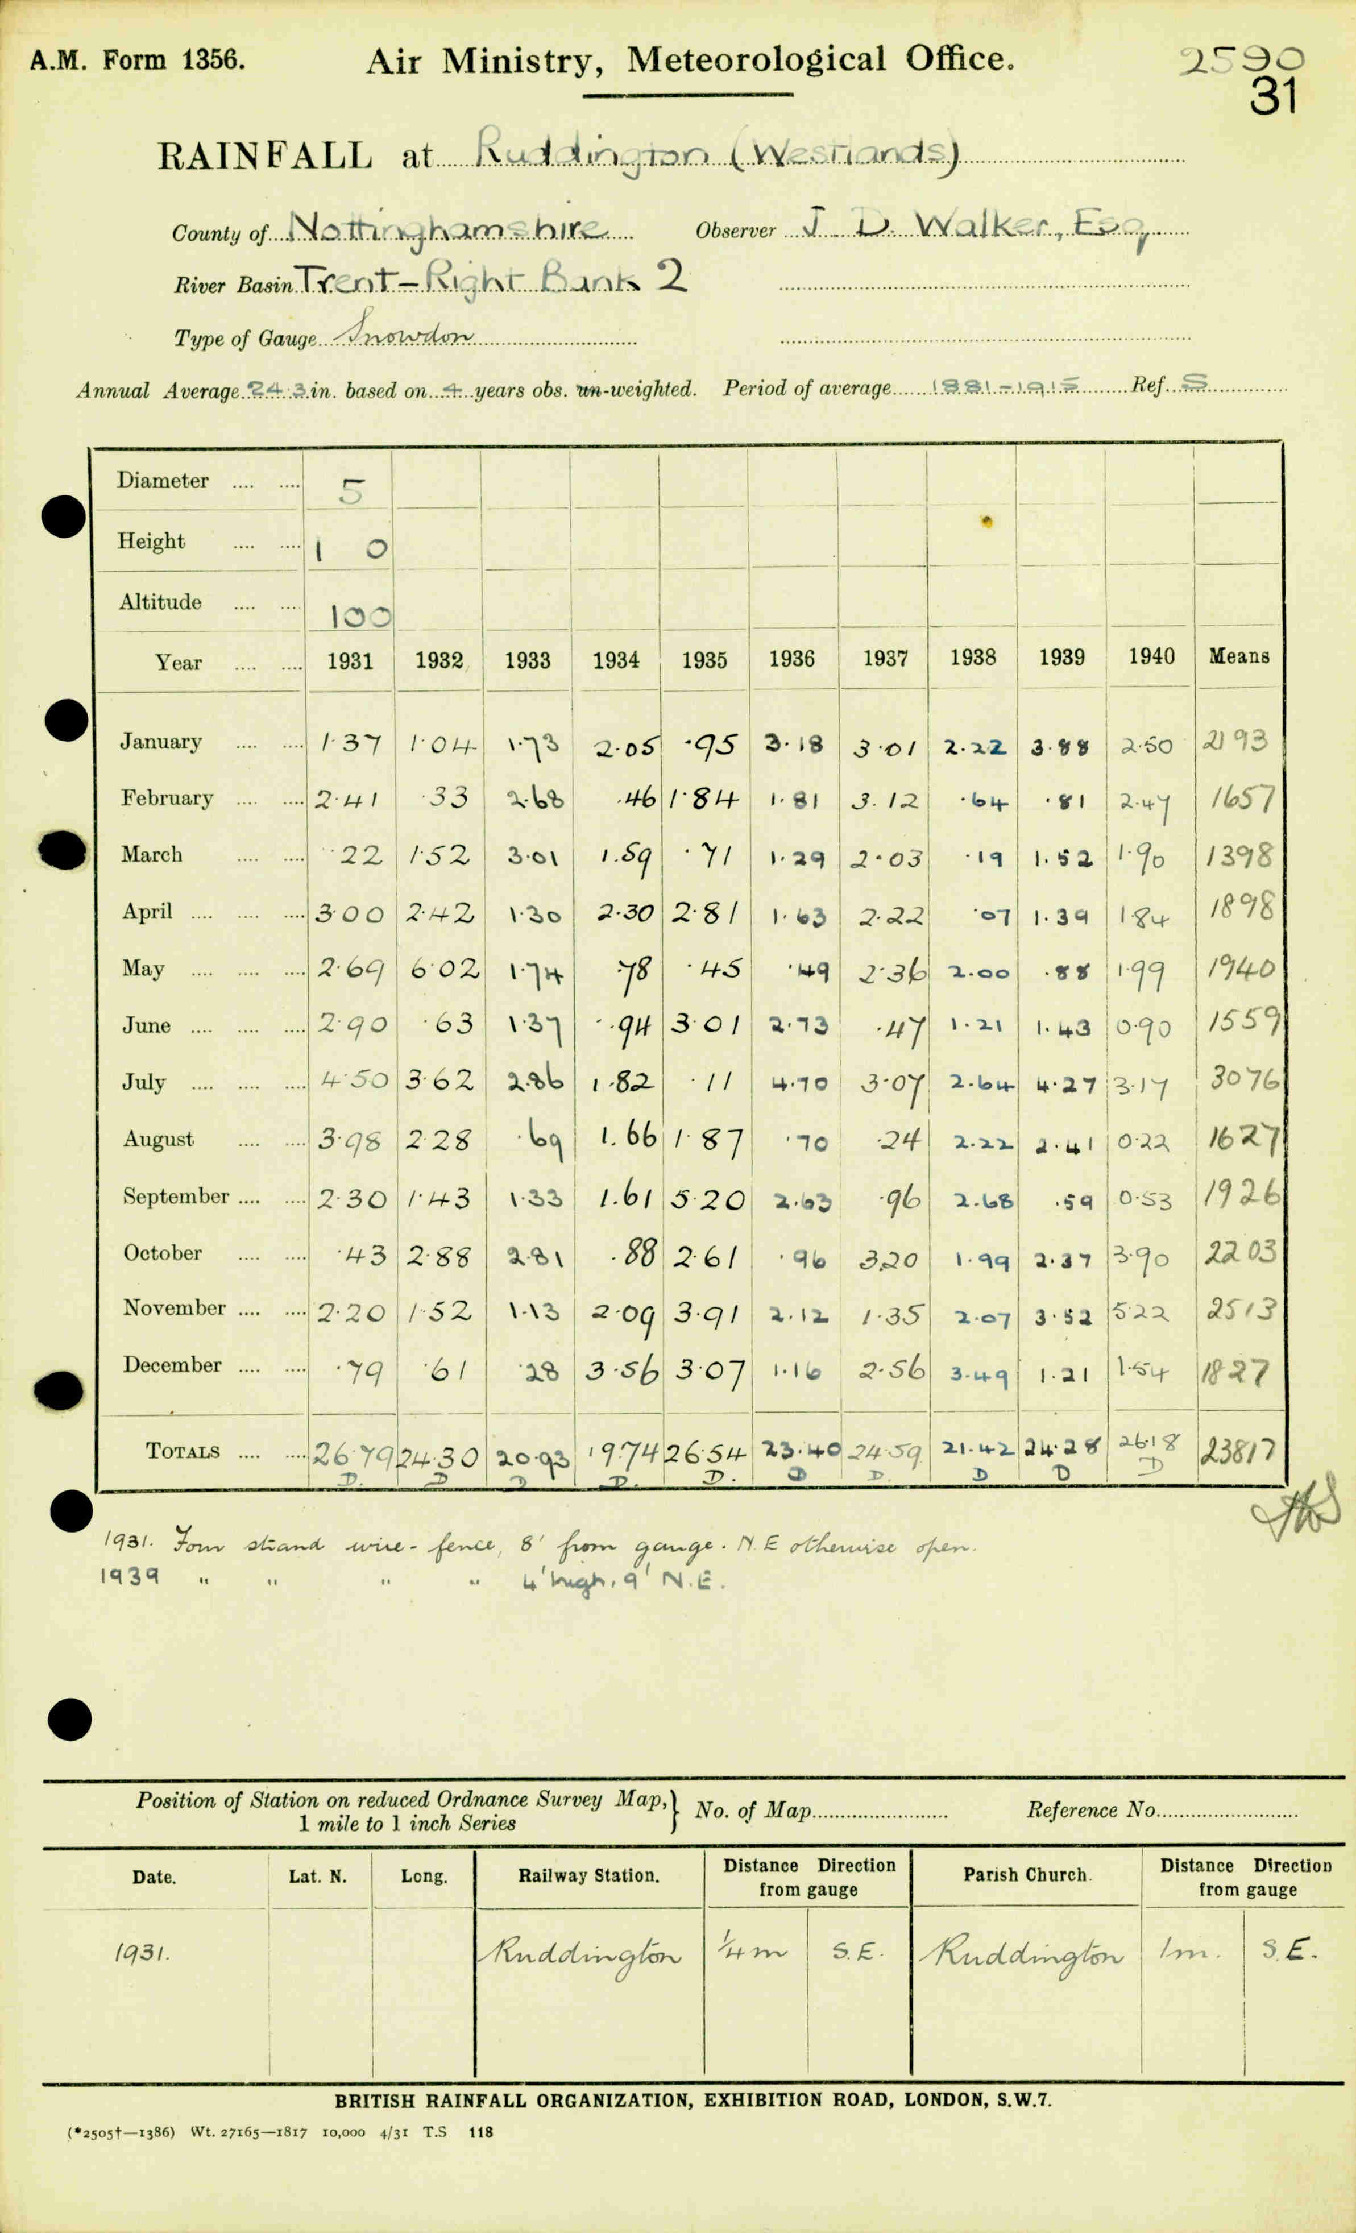 A.M. Form 1356. Air Ministry, Meteorological Office. 2590
31
RAINFALL at Ruddington (Westlands)
County of Nottinghamshire Observer J. D. Walker, Esq
River Basin Trent-Right Bank 2
Type of Gauge Snowdon
Annual Average 24.3 in. based on 4 years obs. un-weighted. Period of average 1881-1915 Ref. S
Diameter .... .... 5
Height .... .... 1 0
Altitude .... .... 100
Year .... .... 1931 1932 1933 1934 1935 1936 1937 1938 1939 1940 Means
January .... .... 1.37 1.04 1.73 2.05 .95 3.18 3.01 2.22 3.88 2.50 2193
February .... .... 2.41 .33 2.68 .46 1.84 1.81 3.12 .64 .81 2.47 1657
March .... .... .22 1.52 3.01 1.59 .71 1.29 2.03 .19 1.52 1.90 1398
April .... .... .... 3.00 2.42 1.30 2.30 2.81 1.63 2.22 .07 1.39 1.84 1898
May .... .... .... 2.69 6.02 1.74 .78 .45 .49 2.36 2.00 .88 1.99 1940
June .... .... .... 2.90 .63 1.37 .94 3.01 2.73 .47 1.21 1.43 0.90 1559
July .... .... .... 4.50 3.62 2.86 1.82 .11 4.70 3.07 2.64 4.27 3.17 3076
August .... .... 3.98 2.28 .69 1.66 1.87 .70 .24 2.22 2.41 0.22 1627
September .... .... 2.30 1.43 1.33 1.61 5.20 2.63 .96 2.68 .59 0.53 1926
October .... .... .43 2.88 2.81 .88 2.61 .96 3.20 1.99 2.37 3.90 2203
November .... .... 2.20 1.52 1.13 2.09 3.91 2.12 1.35 2.07 3.52 5.22 2513
December .... .... .79 .61 .28 3.56 3.07 1.16 2.56 3.49 1.21 1.54 1827
TOTALS .... .... 26.79 24.30 20.93 19.74 26.54 23.40 24.59 21.42 24.28 26.18 23817
D. D D D. D. D D. D D D
1931. Four strand wire-fence, 8' from gauge. N.E otherwise open.
1939 " " " " 4' high, 9' N.E.
Position of Station on reduced Ordnance Survey Map, } No. of Map Reference No.
1 mile to 1 inch Series
Date. Lat. N. Long. Railway Station. Distance Direction from gauge Parish Church. Distance Direction from gauge
1931. Ruddington 1/4 m S.E. Ruddington 1m. S.E.
BRITISH RAINFALL ORGANIZATION, EXHIBITION ROAD, LONDON, S.W.7.
(*2505†—1386) Wt. 27165—1817 10,000 4/31 T.S 118